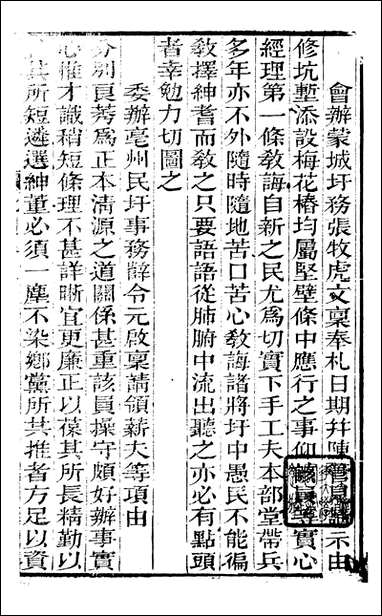 會辦蒙城圩務張牧虎文稟奉札日期并陳管見請示由
修坑塹添設梅花樁均屬堅壁條中應行之事仰該員等實心
經理第一條教誨自新之民尤爲切實下手工夫本部堂帶兵
多年亦不外隨時隨地苦口苦心教誨諸將圩中愚民不能徧
教擇紳耆而教之只要語語從肺腑中流出聽之亦必有點頭
者幸勉力切圖之
委辦亳州民圩事務薛令元啟稟請領薪夫等項由
分別良莠爲正本清源之道關係甚重該員操守頗好辦事實
心惟才識稍短條理不甚詳晰宜更廉正以葆其所長精勤以
其所短遴選紳董必須一塵不染鄉黨所共推者方足以資